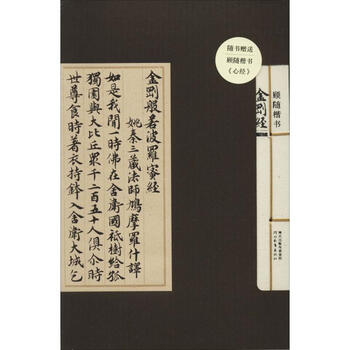 随书赠送
顾随楷书
《心经》
顾随楷书
金剛经
金剛般若波羅蜜經
姚秦三藏法師鳩摩羅什譯
如是我聞一時佛在舍衛國祇樹給孤
獨園與大比丘眾千二百五十人俱尒時
世尊食時著衣持鉢入舍衛大城乞